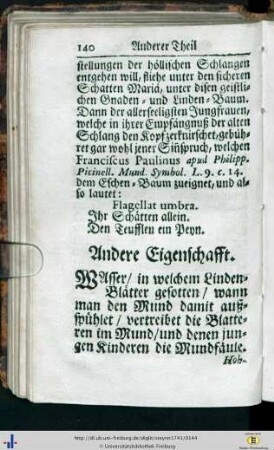 140 Anderer Theil
stellungen der höllischen Schlangen
entgehen will, fliehe unter den sicheren
Schatten Mariä, unter disen geistli-
chen Gnaden- und Linden-Baum.
Dann der allerseeligsten Jungfrauen,
welche in ihrer Empfängnuß der alten
Schlang den Kopf zerknirschet, gebüh-
ret gar wohl jener Sinspruch, welchen
Franciscus Paulinus apud Philipp.
Picinell. Mund. Symbol. L. 9. c. 14.
dem Eschen-Baum zueignet, und al-
so lautet:
Flagellat umbra.
Ihr Schätten allein.
Den Teufflen ein Peyn.
Andere Eigenschafft.
WAsser / in welchem Linden-
Blätter gesotten / wann
man den Mund damit auß-
spühlet / vertreibet die Blatte-
ren im Mund / und denen jun-
gen Kinderen die Mundfäule.
Hoh-
http://dl.ub.uni-freiburg.de/diglit/croyrer1741/0144
© Universitätsbibliothek Freiburg